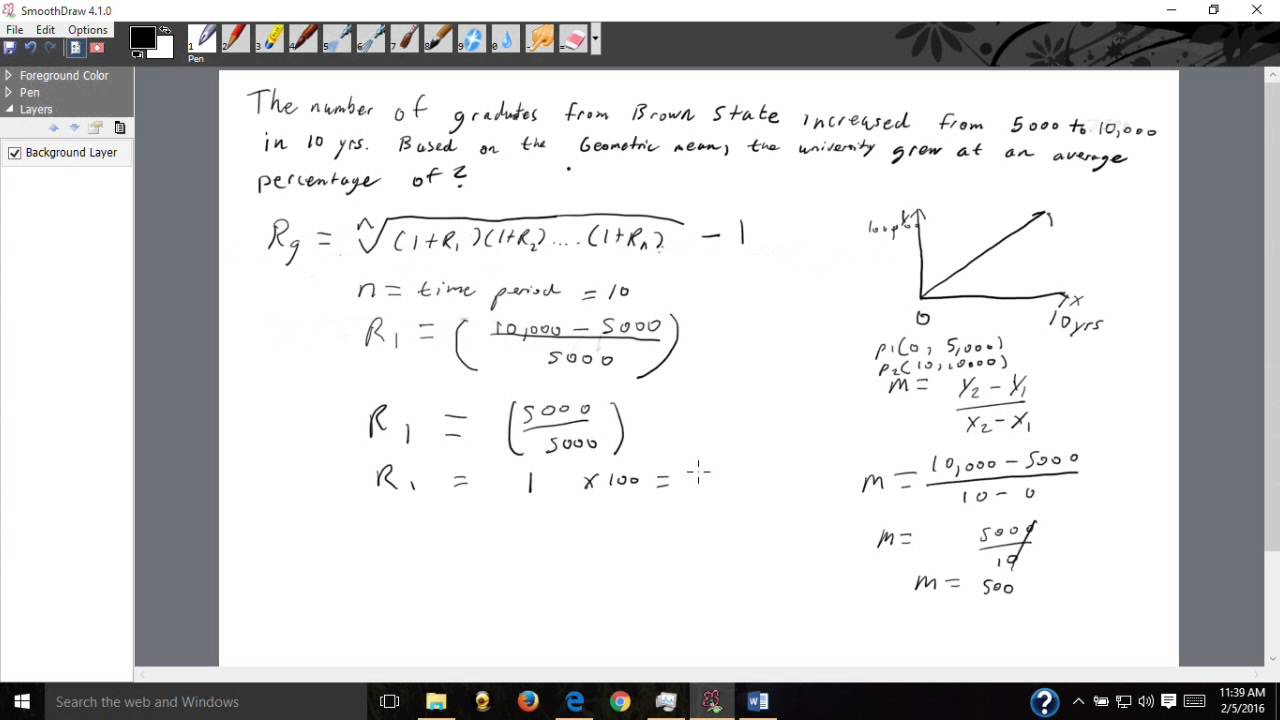 SmoothDraw 4.1.0
File Edit Options
1 2 3 4 5 6 7 8 9 0
Pen
Foreground Color
Pen
Layers
Background Layer
The number of gradutes from Brown State increased from 5000 to 10,000
in 10 yrs. Based on the Geometric mean, the university grew at an average
percentage of ?
Rg = ⁿ√(1+R₁)(1+R₂)....(1+Rₙ) - 1
n = time period = 10
R₁ = (10,000 - 5000 / 5000)
R₁ = (5000 / 5000)
R₁ = 1 x 100 =
x
0
10 yrs
P1(0, 5,000)
P2(10, 10,000)
m = Y₂ - Y₁ / X₂ - X₁
m = 10,000 - 5000 / 10 - 0
m = 5000 / 10
m = 500
Search the web and Windows
11:39 AM
2/5/2016